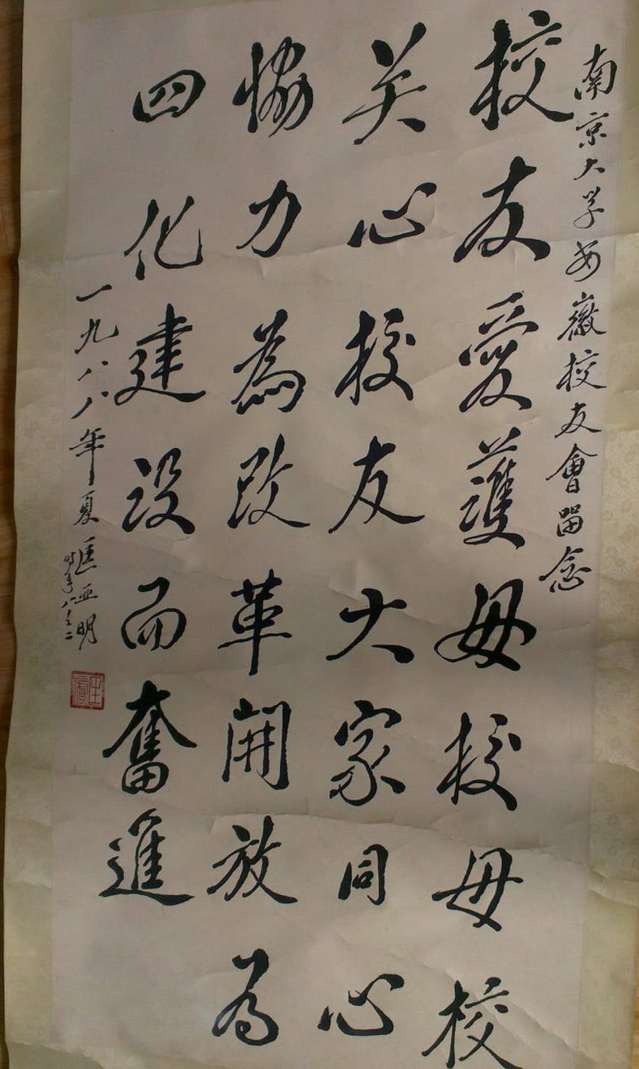 南京大学安徽校友會留念
校友爱護母校母校
关心校友大家同心
協力為改革開放為
四化建设而奮進
一九八八年夏匡亚明
时年八十二